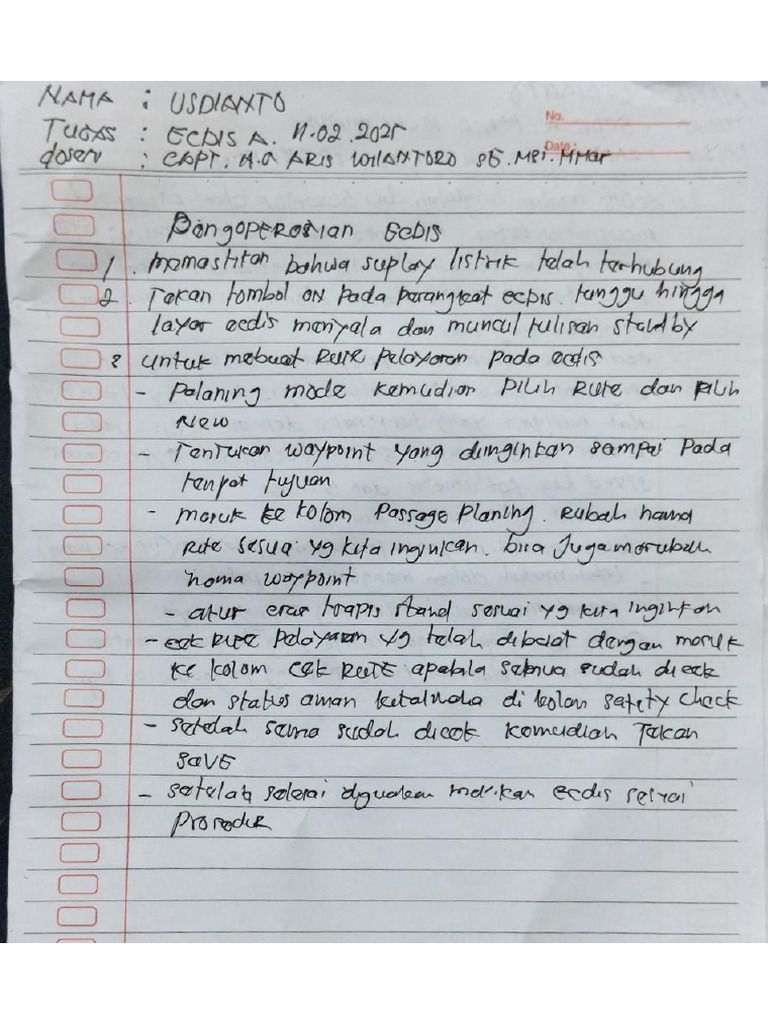 NAMA : USDIANTO
No.
TUGAS : ECDIS A. 11.02.2025
Date :
dosen : CAPT. ARIS WIHANTORO SE. MPi. MMar
PengOPERasian ECDIS
1. memastikan bahwa suplay listrik telah terhubung
2. Tekan tombol ON pada perangkat ecdis. tunggu hingga
layar ecdis menyala dan muncul tulisan standby
3 untuk mebuat RUTE Pelayaran pada ecdis
- Palaning mode kemudian PILIH RUTE dan PILIH
NEW
- Tentukan waypoint yang diinginkan sampai pada
tempat tujuan
- masuk ke kolom Passage Planing. Rubah nama
RUTE sesuai yg kita inginkan. bisa Juga merubah
nama waypoint
- atur sesuai yg kita inginkan
- cek RUTE Pelayaran yg telah dibuat dengan masuk
ke kolom CEK RUTE apabila semua sudah di cek
dan status aman di kolom safety check
- setelah semua sudah dicek kemudian Tekan
SAVE
- setelah selesai digunakan matikan ecdis sesuai
Prosedur